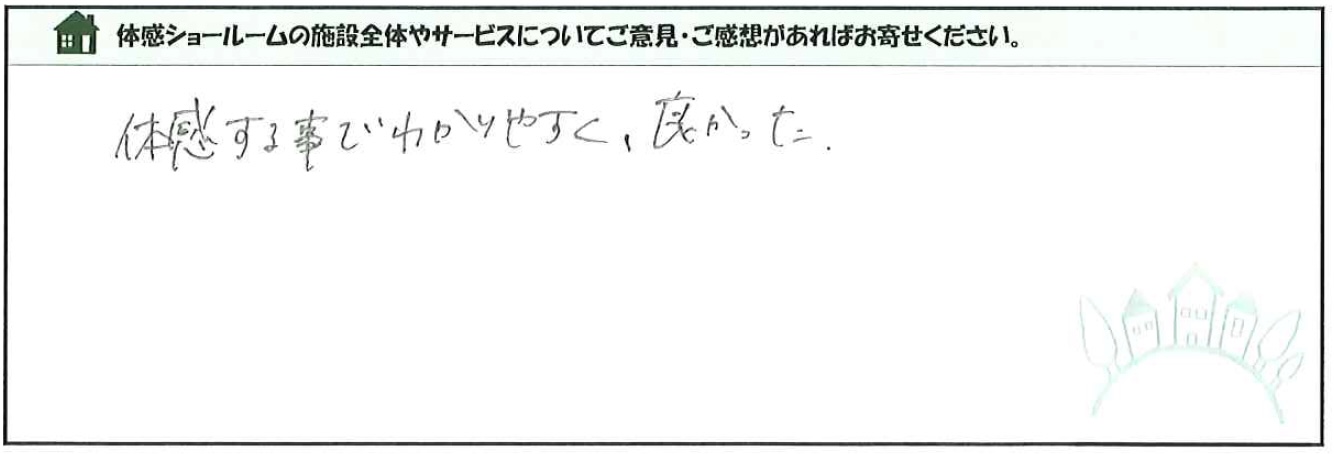 体感ショールームの施設全体やサービスについてご意見・ご感想があればお寄せください。
体感する事でわかりやすく、良かった.